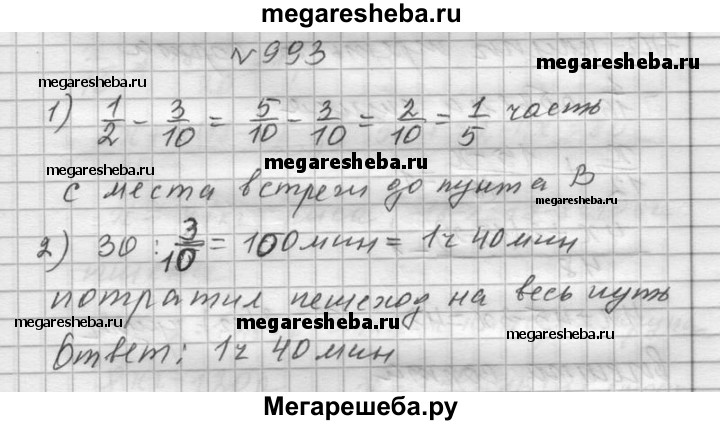 megaresheba.ru
№993
megaresheba.ru
megaresheba.ru
1) 1/2 - 3/10 = 5/10 - 3/10 = 2/10 = 1/5 часть
megaresheba.ru
с места встречи до пункта В
megaresheba.ru
2) 30 : 3/10 = 100мин = 1ч 40мин
потратил пешеход на весь путь
megaresheba.ru
megaresheba.ru
megaresheba.ru
Ответ: 1ч 40мин
Мегарешеба.ру